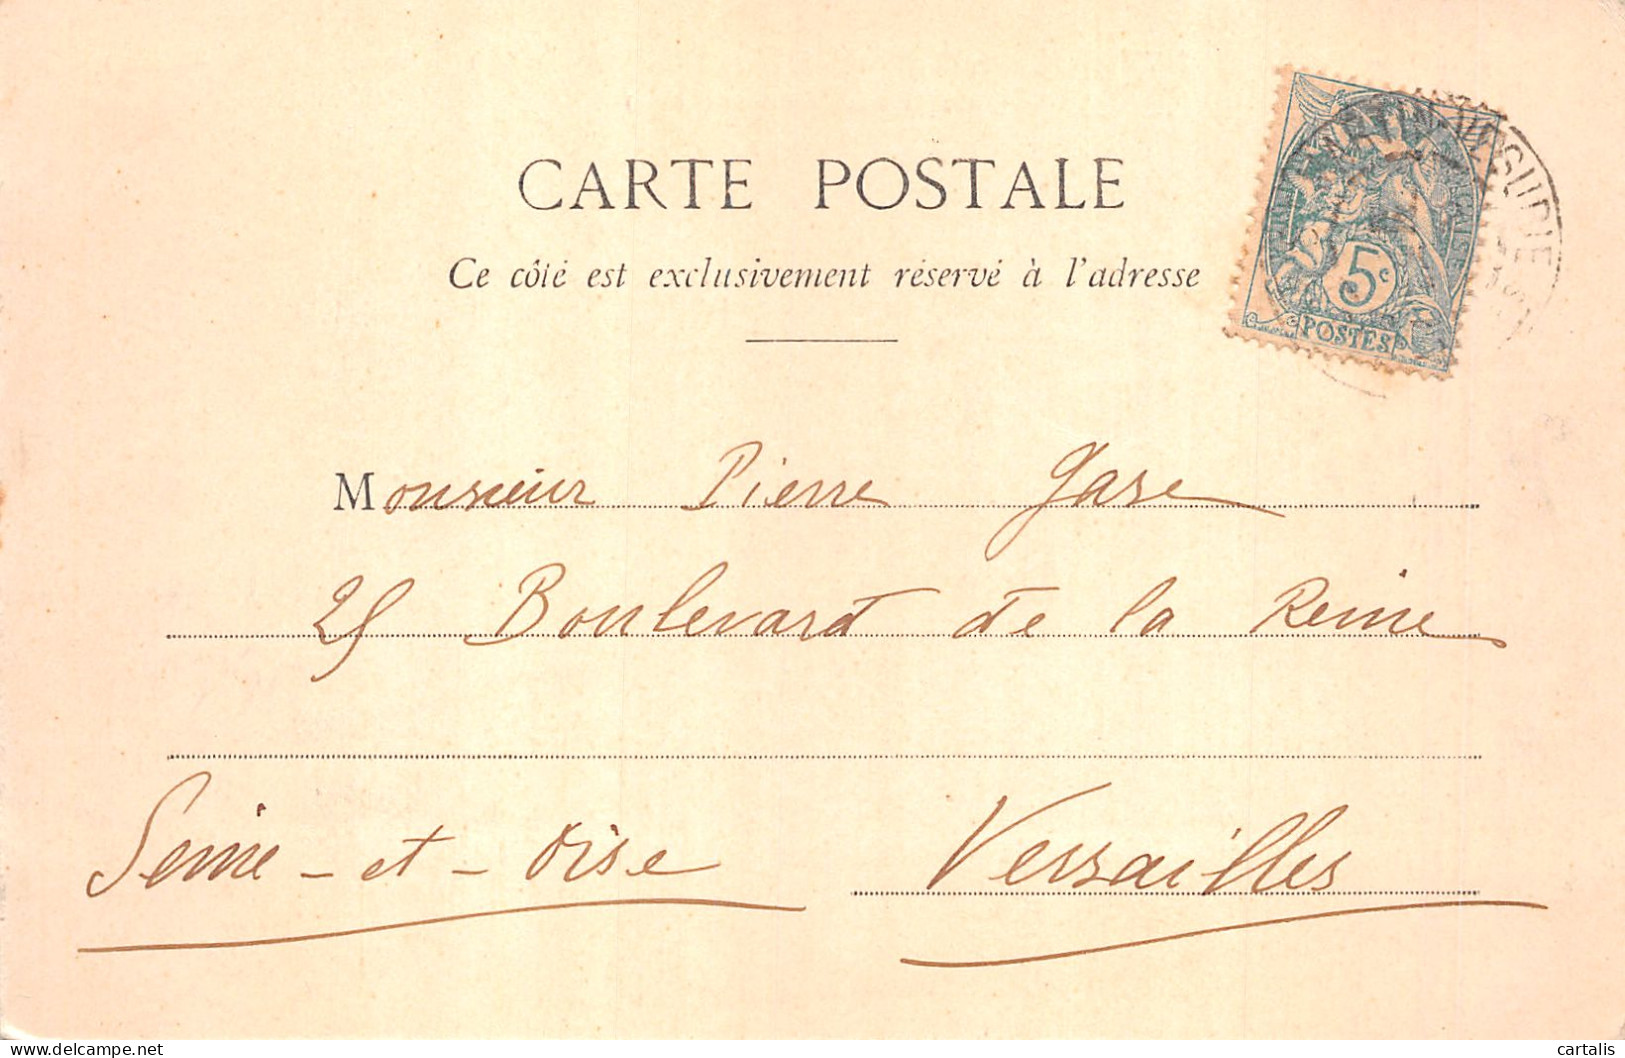 CARTE POSTALE
Ce côté est exclusivement réservé à l'adresse
5c
POSTES
Monsieur Pierre Gase
25 Boulevard de la Reine
Seine-et-Oise Versailles
delcampe.net
cartalis